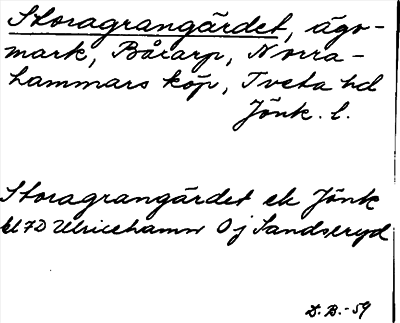 Storagrangärdet, ägo-
mark, Bårarp, Norra-
hammars köp, Tveta hd
Jönk. l.
Storagrangärdet ek Jönk
bl 7D Ulricehamn Oj Sandseryd
D. B. -59